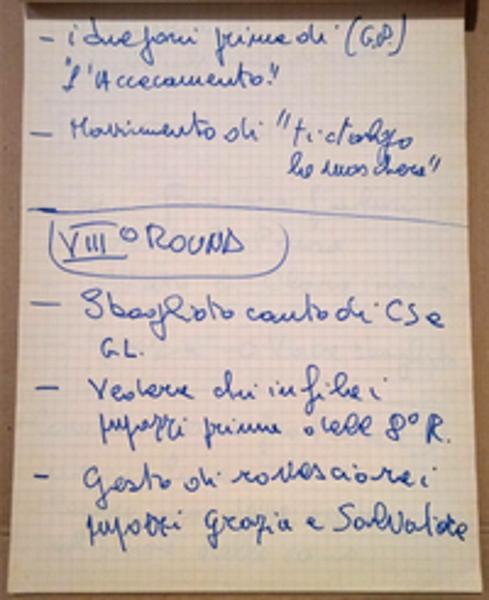 - i due fari prima di (G.P.)
"L'Accecamento"
- Movimento di "ti tolgo
la maschera"
VIII° ROUND
- Sbagliato canto di CS e
GL.
- Vedere chi infila i
pupazzi prima dell' 8° R.
- Gesto di rovesciare i
pupazzi Grazia e Salvatore